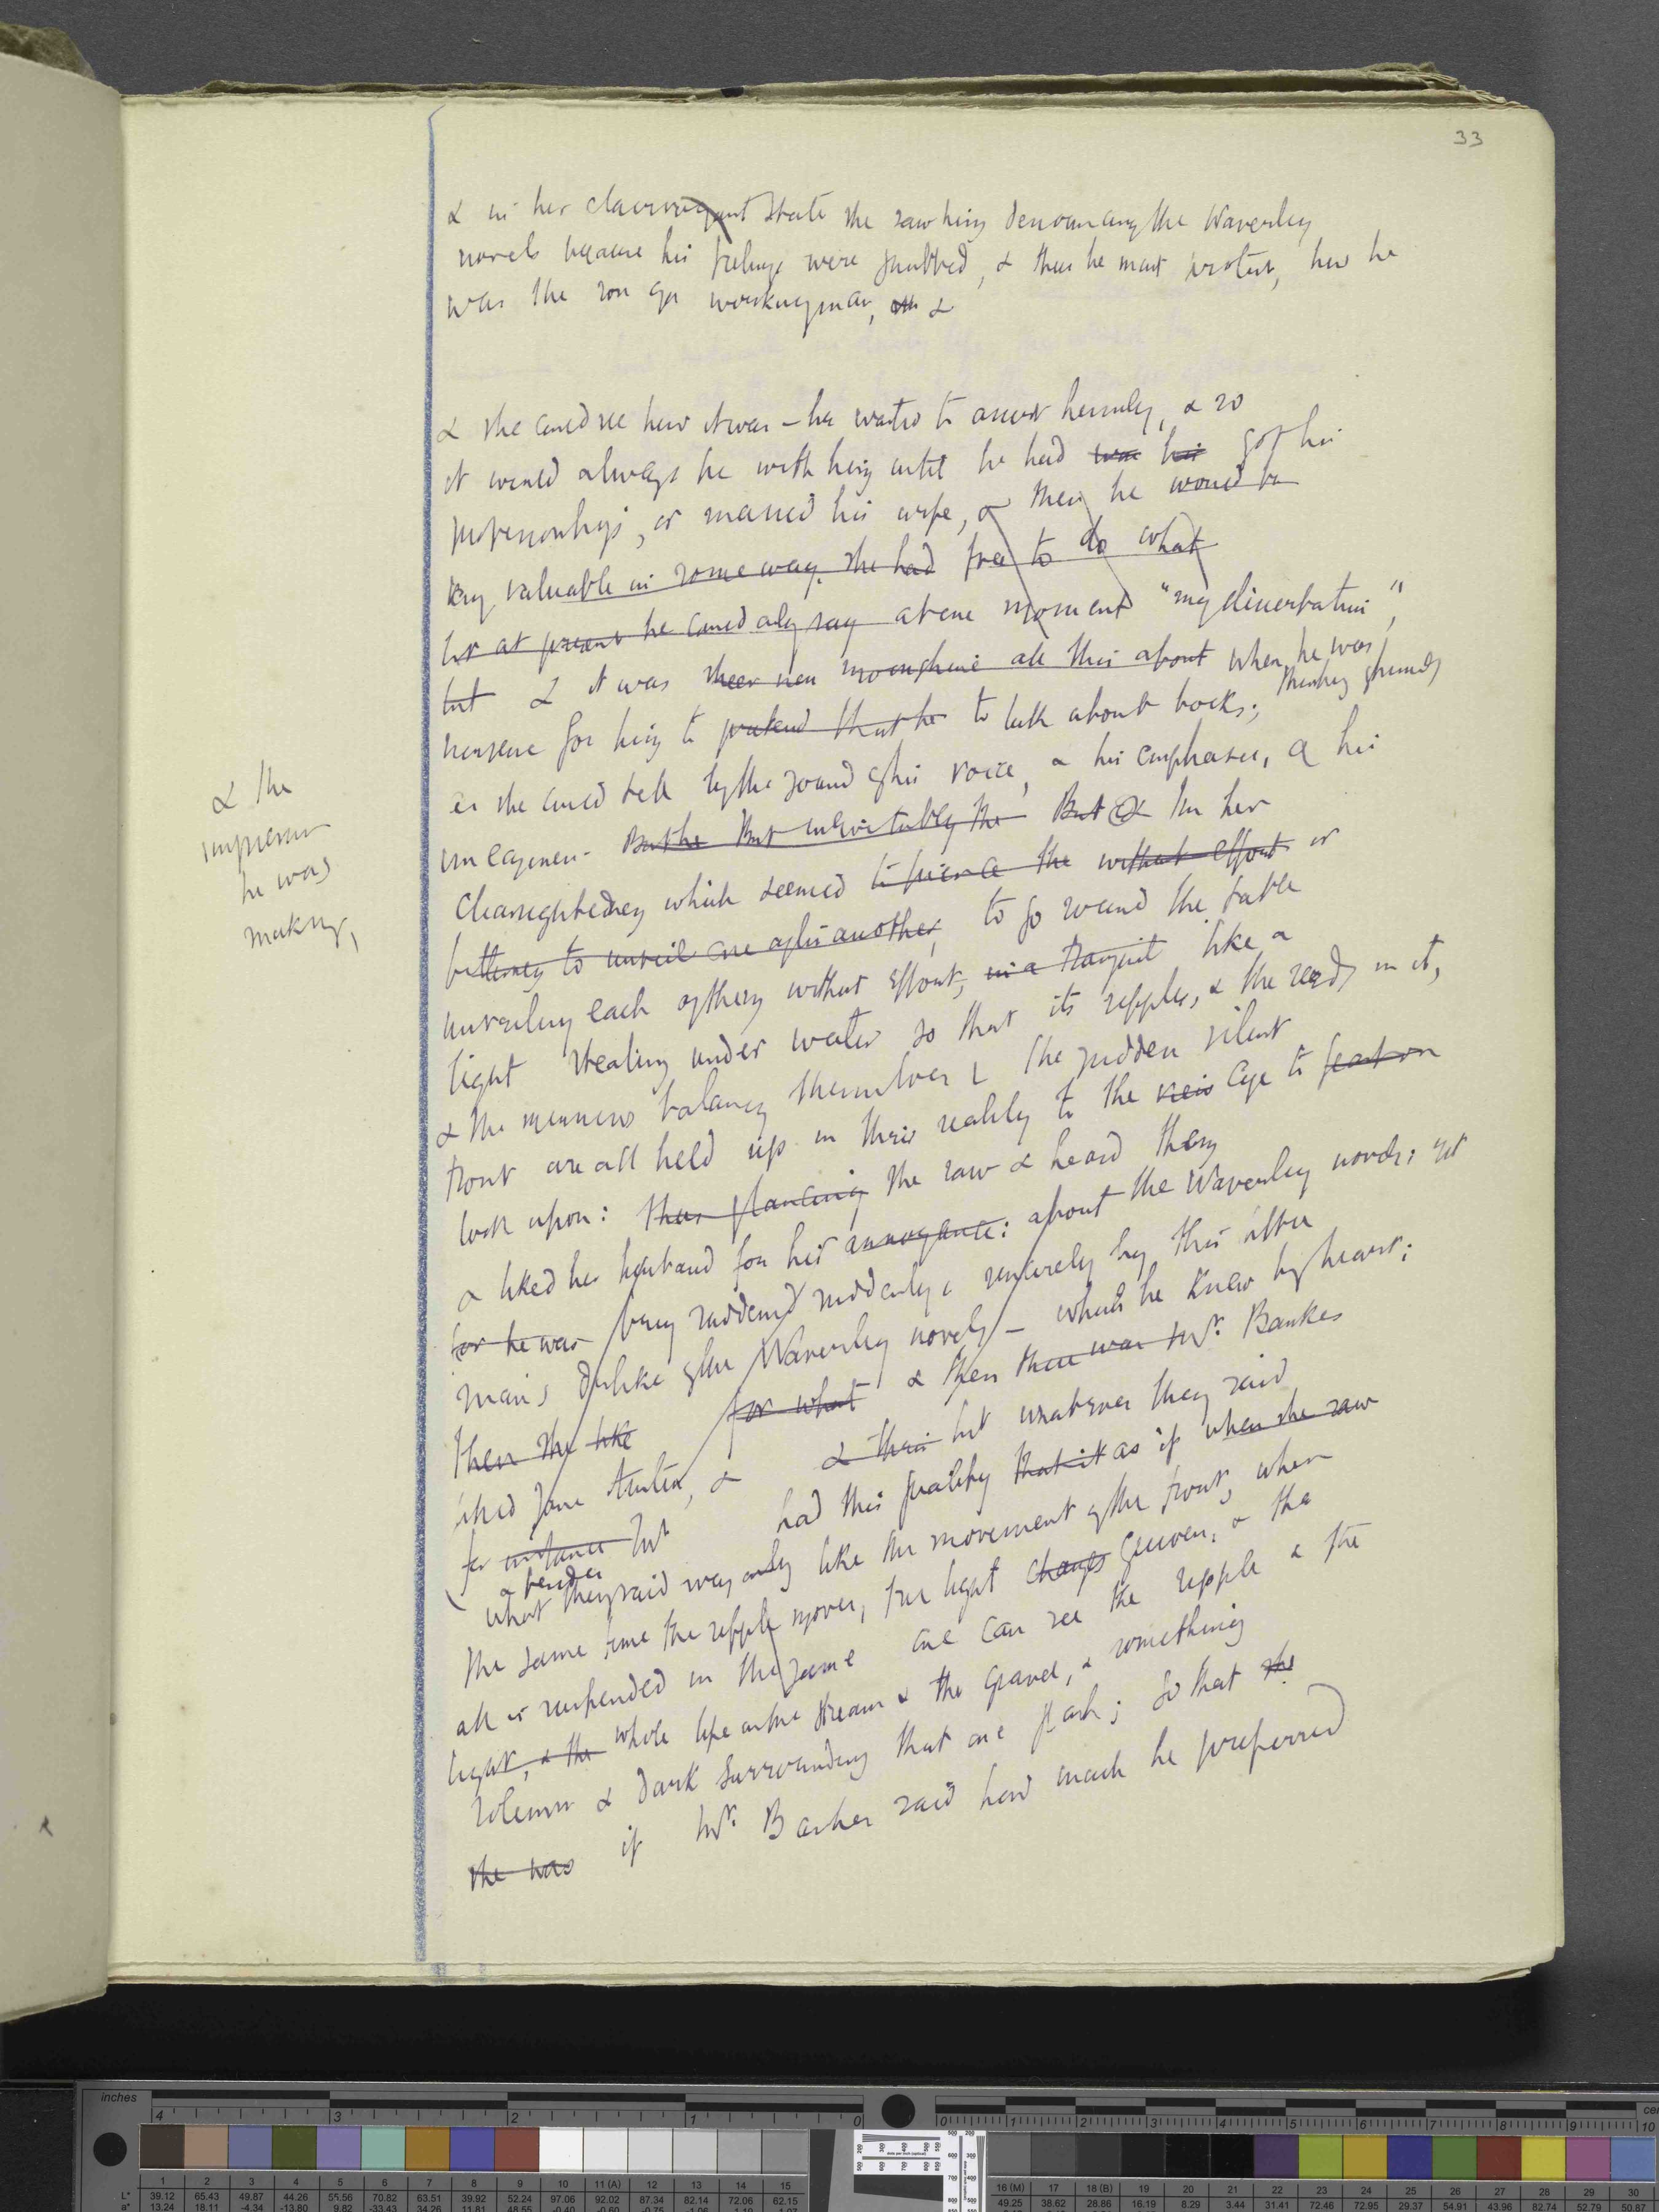 33
& in her clairvoyant state she saw him denouncing the Waverley
novels because his feelings were snubbed, & thus he must protest, how he
was the son of a workingman, &
& she could see how it was – he wanted to assert himself, & so
it would always be with him until he had was his got his
professorship, or married his wife, & then he would be
very valuable in some way. She had free to do what
but at present he could only say at one moment "my dissertation",
but & it was sheer moonshine all this about when he was
nonsense for him to pretend that he to talk about books; thinking
as she could tell by the sound of his voice, & his emphasis, & his
& the
impression
he was
making,
uneasiness. But he But inevitably the But & In her
clearsightedness which seemed to pierce the without effort or
to unveil one after another, to go round the table
unveiling each of them without effort, in a tranquil like a
light stealing under water so that its ripples, & the reeds in it,
& the minnows balancing themselves & the sudden silent
trout are all held up in their reality to the eye to
look upon: thus glancing she saw & heard them
& liked her husband for his annoyance: about the Waverley novels: yet
for he was being saddened suddenly & sincerely by this little
man's dislike of the Waverley novels – which he knew by heart;
then she like for what & then there was Mr. Bankes
liked Jane Austen, & & their but whatever they said
for instance but had this quality that it as if when she saw
what they said was only like the movement of the trout, when
the same time the ripple moves, the light changes quivers, & the
all is suspended in the same one can see the ripple & the
light, & the whole life of the stream & the gravel, & something
solemn & dark surrounding that one flash; so that she
she was if Mr. Bankes said how much he preferred
inches
4 3 2 1 0
0 1 2 3 4 5 6 7 8 9 10
1 2 3 4 5 6 7 8 9 10 11 (A) 12 13 14 15
16 (M) 17 18 (B) 19 20 21 22 23 24 25 26 27 28 29 30
L* 39.12 65.43 49.87 44.26 55.56 70.82 63.51 39.92 52.24 97.06 92.02 87.34 82.14 72.06 62.15
49.25 38.62 28.86 16.19 8.29 3.44 31.41 72.46 72.95 29.37 54.91 43.96 82.74 52.79 50.87